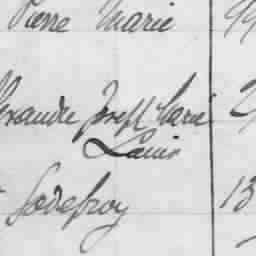 Pierre Marie
Alexandre Joseph Marie
Louis
Godefroy 13